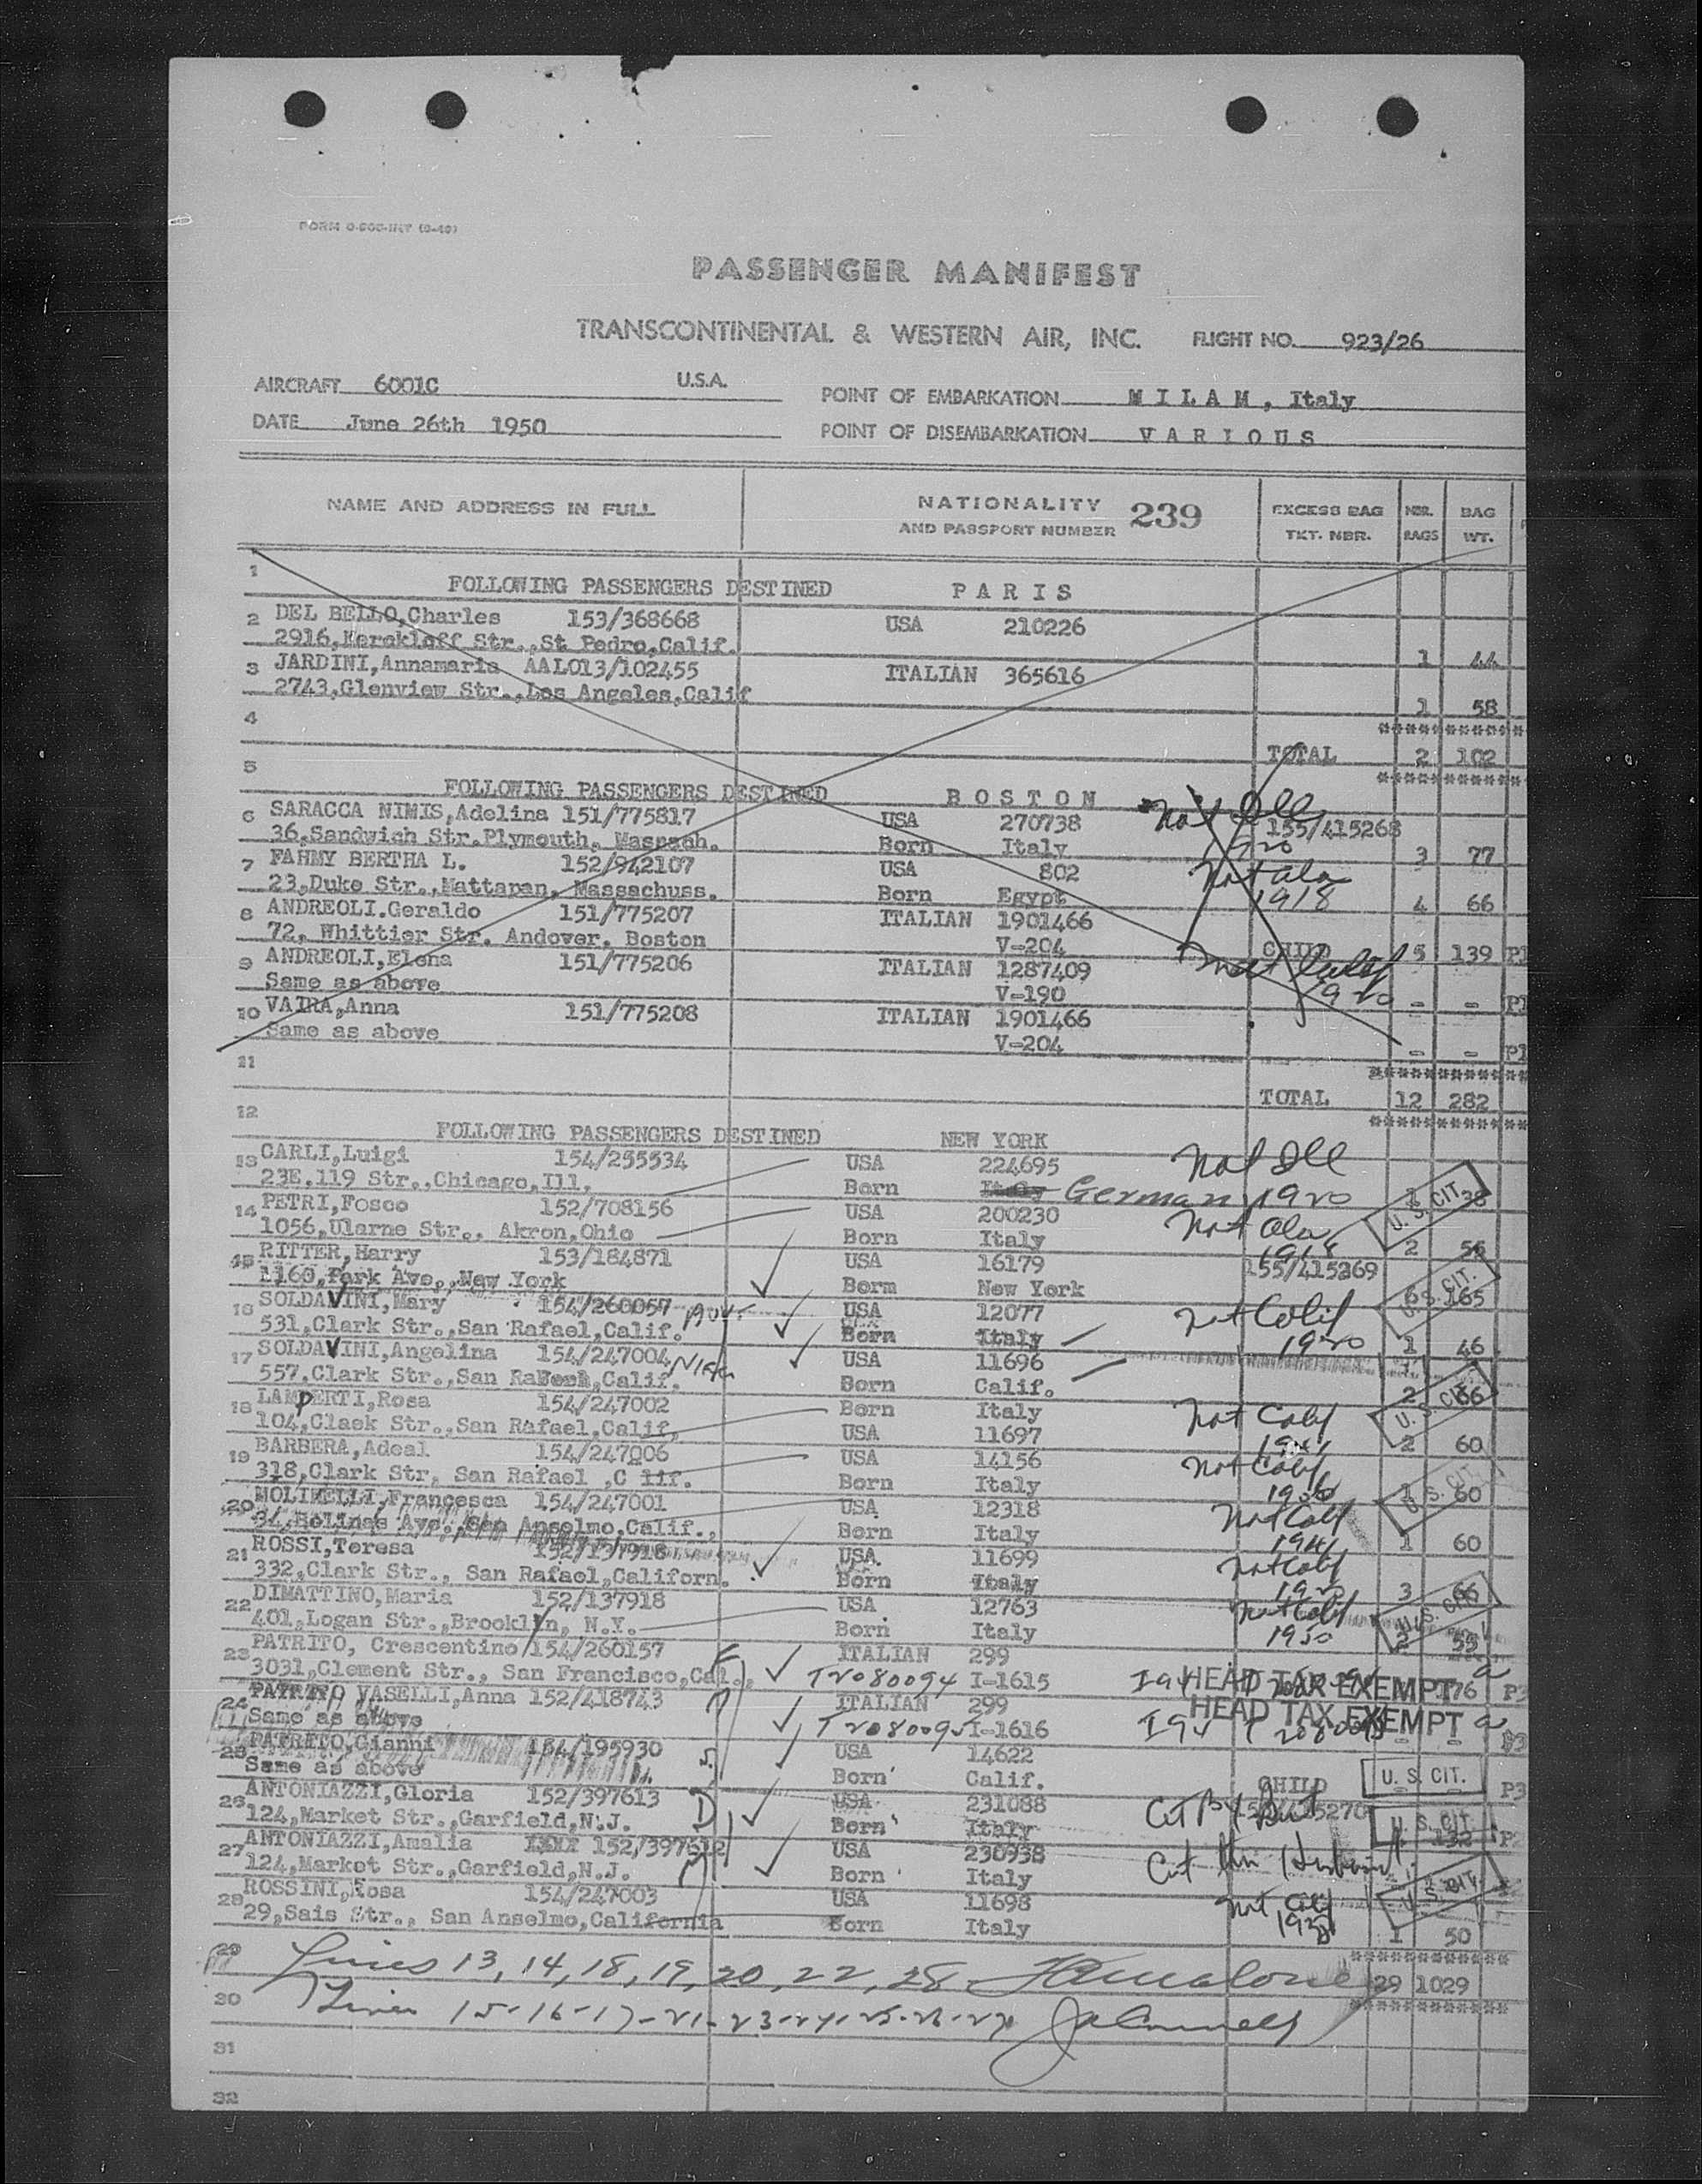 PASSENGER MANIFEST
TRANSCONTINENTAL & WESTERN AIR, INC. FLIGHT NO. 923/26
AIRCRAFT 6001C U.S.A. POINT OF EMBARKATION M I L A M , Italy
DATE June 26th 1950 POINT OF DISEMBARKATION V A R I O U S
NAME AND ADDRESS IN FULL NATIONALITY AND PASSPORT NUMBER 239 EXCESS BAG TKT. NBR. NBR. BAGS BAG WT.
1
FOLLOWING PASSENGERS DESTINED P A R I S
2 DEL BELLO,Charles 153/368668 USA 210226
2916, Str.,St Pedro,Calif. 1 44
3 JARDINI,Annamaria AAL013/102455 ITALIAN 365616
2743,Glenview Str.,Los Angeles,Calif 1 58
4
TOTAL 2 102
5
FOLLOWING PASSENGERS DESTINED B O S T O N
6 SARACCA NIMIS,Adelina 151/775817 USA 270738 155/415268
36,Sandwich Str.Plymouth, Born Italy 3 77
7 FAHMY BERTHA L. 152/942107 USA 802 Nat
23,Duke Str.,Mattapan, Massachuss. Born Egypt 1918 4 66
8 ANDREOLI.Geraldo 151/775207 ITALIAN 1901466
72, Whittier Str. Andover, Boston V-204 CHILD 5 139
9 ANDREOLI,Elena 151/775206 ITALIAN 1287409
Same as above V-190 - -
10 VAIRA,Anna 151/775208 ITALIAN 1901466
Same as above V-204 - -
11
TOTAL 12 282
12
FOLLOWING PASSENGERS DESTINED NEW YORK
13 CARLI,Luigi 154/255534 USA 224695 Nat Ill
23E.119 Str.,Chicago,Ill. Born Italy German 1920 1 38 U. S. CIT.
14 PETRI,Fosco 152/708156 USA 200230 Nat
1056, Str., Akron,Ohio Born Italy 1918 2
15 RITTER,Harry 153/184871 USA 16179 155/415269
1160,Park Ave,,New York Born New York 6 165 U. S. CIT.
16 SOLDAVINI,Mary 154/260057 USA 12077 Nat Calif
531,Clark Str.,San Rafael,Calif. Born Italy 1920 1 46
17 SOLDAVINI,Angelina 154/247004 USA 11696
557,Clark Str.,San ,Calif. Born Calif. 2 66 U. S. CIT.
18 LAMPERTI,Rosa 154/247002 Born Italy Nat Calif
104,Claek Str.,San Rafael,Calif, USA 11697 2 60
19 BARBERA,Adeal 154/247006 USA 14156 Nat Calif
318,Clark Str, San Rafael ,C lif. Born Italy 1 60 U. S. CIT.
20 MOLINELLI,Francesca 154/247001 USA 12318 Nat Calif
34,Bolinas Ave.,San Anselmo,Calif., Born Italy 1941 1 60
21 ROSSI,Teresa 152/137916 USA. 11699 Nat Calif
332,Clark Str., San Rafael,Californ. Born Italy 3 66
22 DIMATTINO,Maria 152/137918 USA 12763 Nat Calif
401,Logan Str.,Brooklyn, N.Y. Born Italy 1950 2 55 U. S. CIT.
23 PATRITO, Crescentino 154/260157 ITALIAN 299
3031,Clement Str., San Francisco,Cal., T2080094 I-1615 HEAD TAX EXEMPT
24 PATRITO VASELLI,Anna 152/418743 ITALIAN 299
Same as above T2080095 I-1616 HEAD TAX EXEMPT
25 PATRITO,Gianni 154/195930 USA 14622
Same as above Born Calif. CHILD U. S. CIT.
26 ANTONIAZZI,Gloria 152/397613 USA 231088
124,Market Str.,Garfield,N.J. Born Italy U. S. CIT. 132
27 ANTONIAZZI,Amalia 152/397612 USA 230938
124,Market Str.,Garfield,N.J. Born Italy U. S. CIT.
28 ROSSINI,Rosa 154/247003 USA 11698
29,Sais Str., San Anselmo,California Born Italy 1 50
29 Lines 13, 14, 18, 19, 20, 22, 28 29 1029
30 Lines 15-16-17-21-23-24-25-26-27
31
32